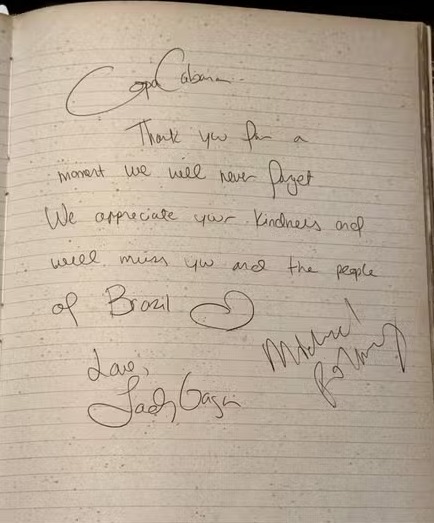 CopaCabana
Thank you for a
moment we will never forget
We appreciate your kindness and
will miss you and the people
of Brazil
Love,
Lady Gaga
Michael
Polansky